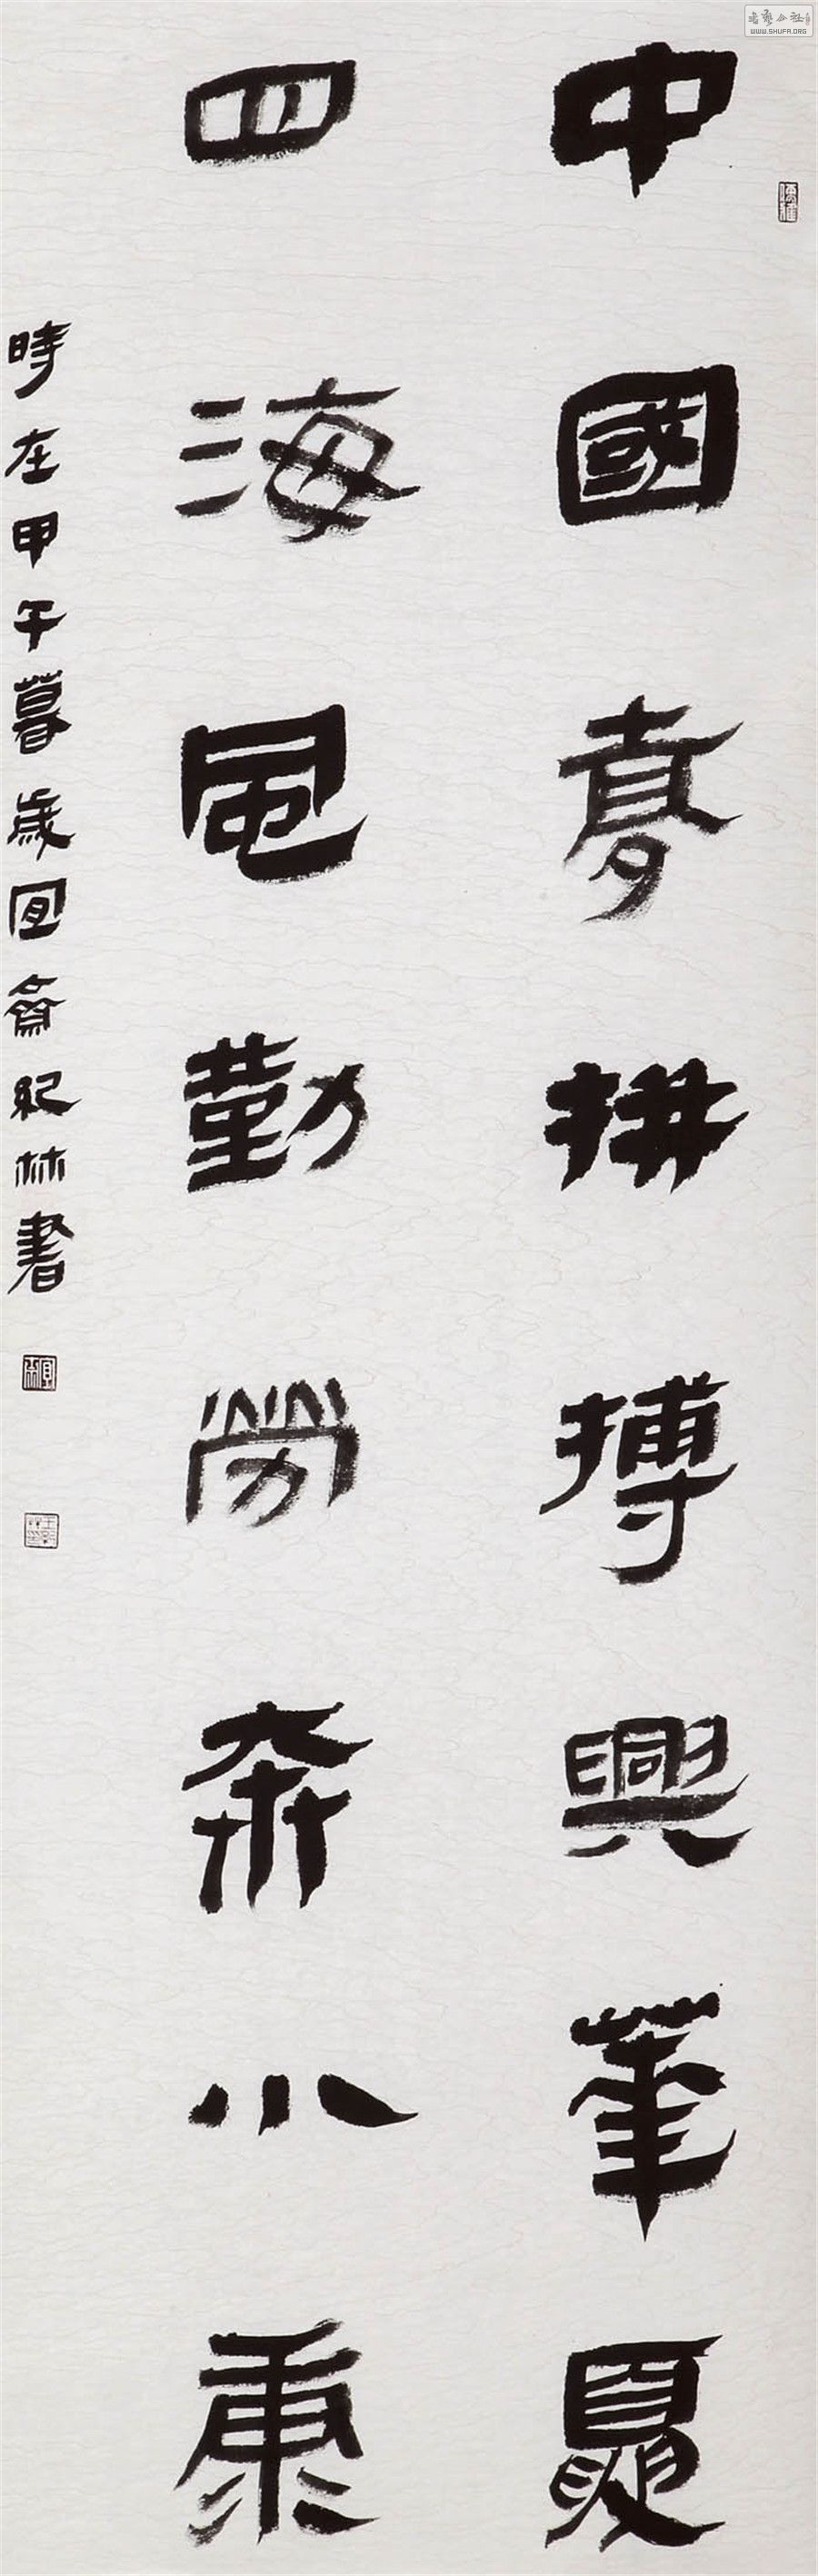 中國夢拼搏興華夏
四海風勤勞奔小康
時在甲午暮歲齋紀林書
书艺公社
WWW.SHUFA.ORG